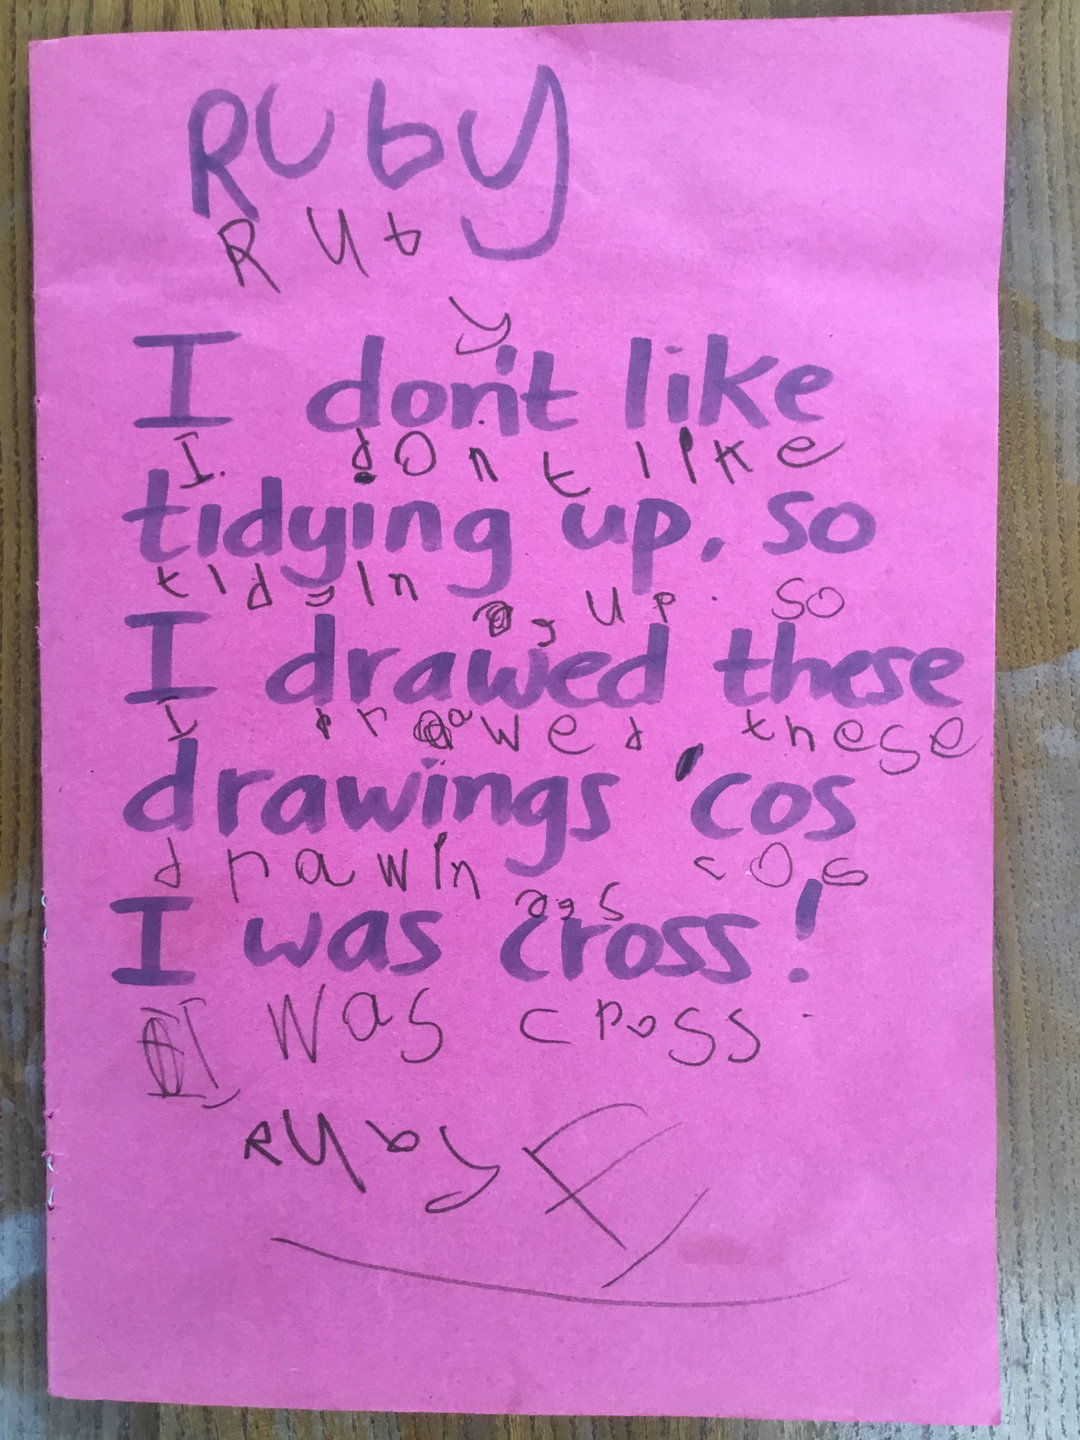 Ruby
R u b
y
I don't like
I. don t like
tidying up, so
tidyin g up. so
I drawed these
I drawed these
drawings 'cos
drawin gs cos
I was cross!
I was cross.
Ruby F